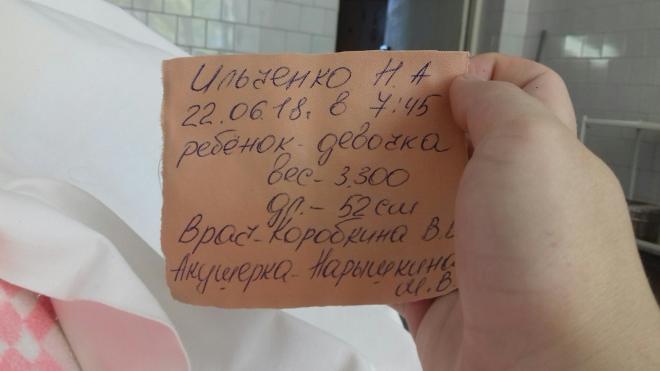 Ильченко Н.А
22.06.18. в 7:45
ребёнок - девочка
вес - 3.300
др. - 52 см
Врач - Коробкина В.
Акушерка - Нарышкина
М.В